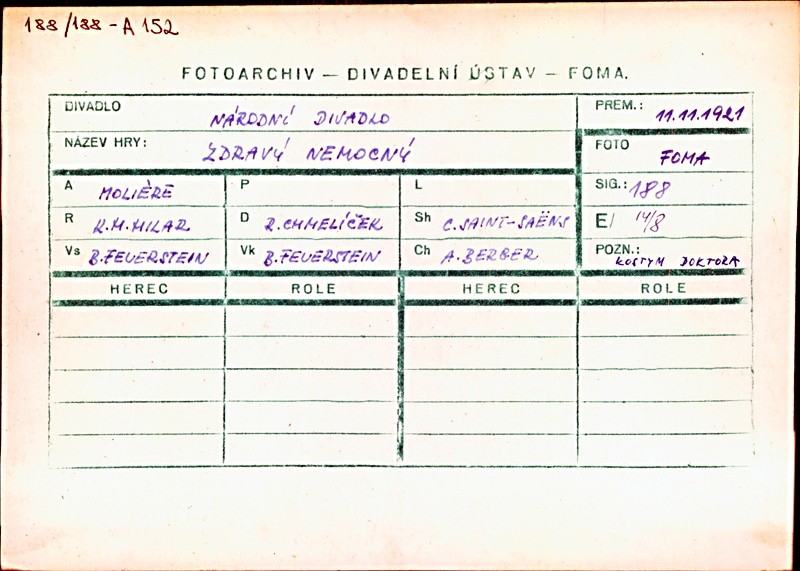 188/188 - A 152
FOTOARCHIV — DIVADELNÍ ÚSTAV — FOMA.
DIVADLO NÁRODNÍ DIVADLO PREM.: 11.11.1921
NÁZEV HRY: ZDRAVÝ NEMOCNÝ FOTO FOMA
A MOLIÈRE P L SIG.: 188
R K.M.HILAR D R.CHMELÍČEK Sh C.SAINT-SAËNS E/ 14/8
Vs B.FEUERSTEIN Vk B.FEUERSTEIN Ch A.BERGER POZN.: KOSTYM DOKTORA
HEREC ROLE HEREC ROLE